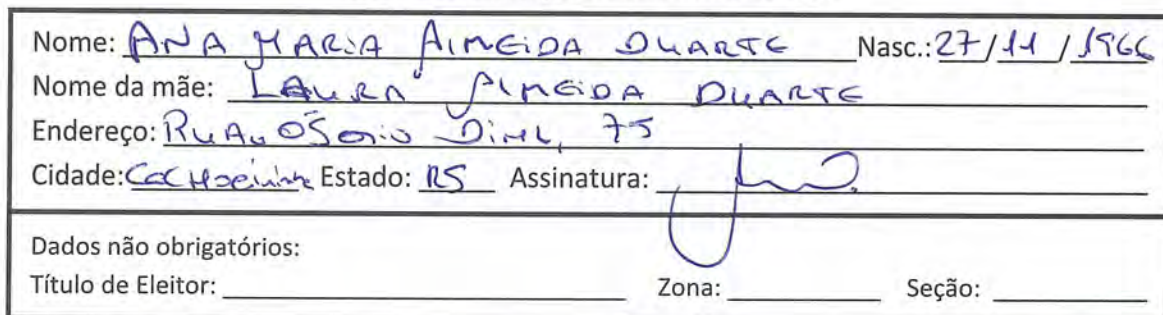 Nome: ANA MARIA ALMEIDA DUARTE Nasc.: 27/11/1966
Nome da mãe: LAURA ALMEIDA DUARTE
Endereço: RUA OSORIO 75
Cidade: Cachoeirinha Estado: RS Assinatura:
Dados não obrigatórios:
Título de Eleitor: Zona: Seção: